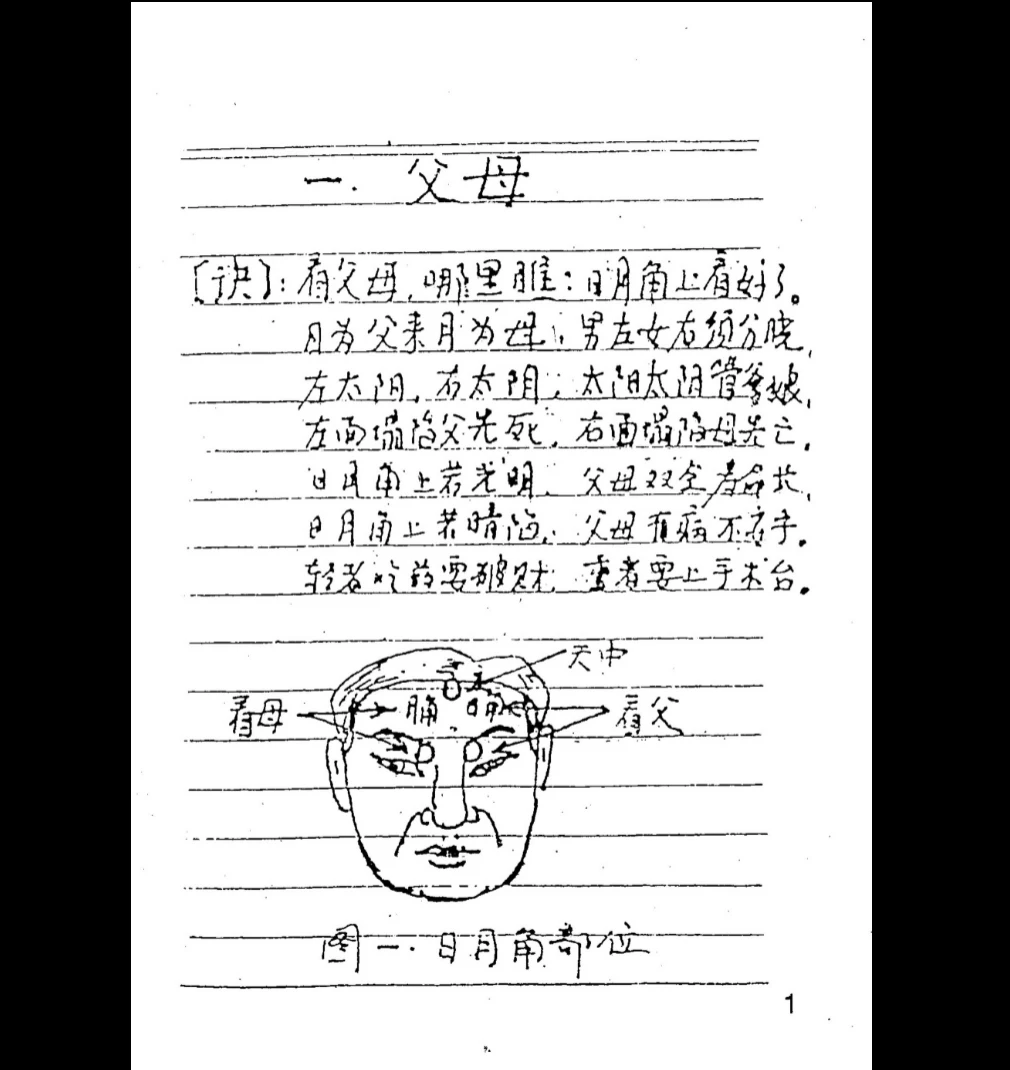 一.父母
〔诀〕:看父母,哪里瞧:日月角上看好了。
日为父来月为母;男左女右须分晓,
左太阳,右太阴;太阳太阴管爹娘,
左面塌陷父先死,右面塌陷母先亡,
日月角上若光明,父母双全寿命长,
日月角上若暗陷,父母有病不在手。
轻者吃药要破财,重者要上手术台。
天中
看母 月角 日角 看父
图一.日月角部位
1